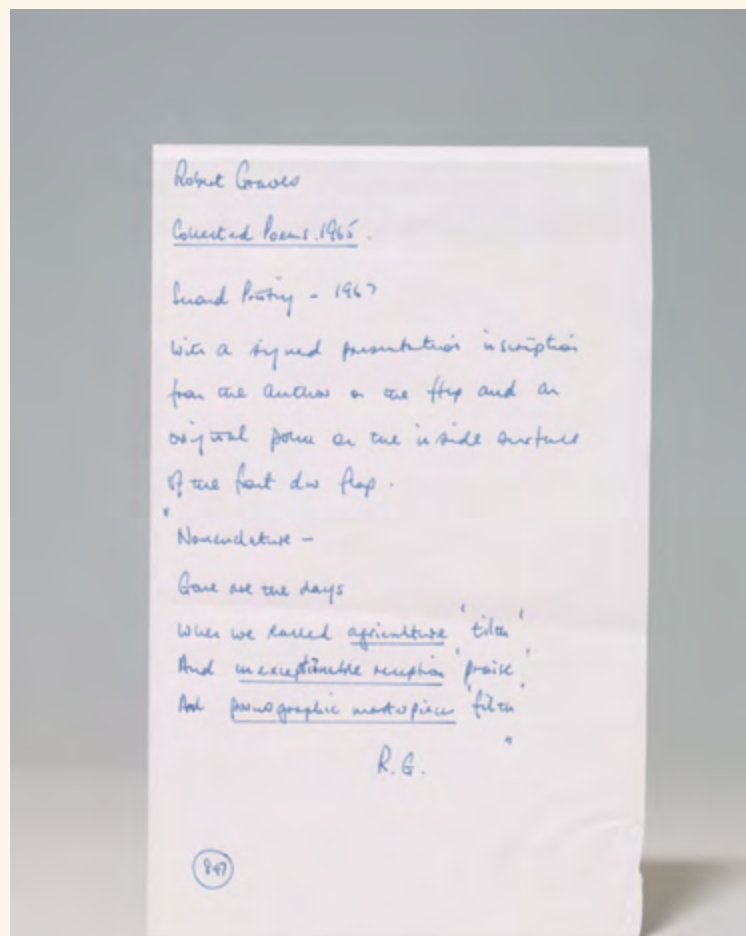 Robert Graves
Collected Poems. 1965.
Second Printing - 1967
With a signed presentation inscription
from the author on the ffep and an
original poem on the inside surface
of the front dw flap.
"
Nomenclature -
Gone are the days
When we called agriculture 'tilth'
And unexceptionable reception 'praise'
And pornographic masterpiece 'filth'
"
R.G.
897